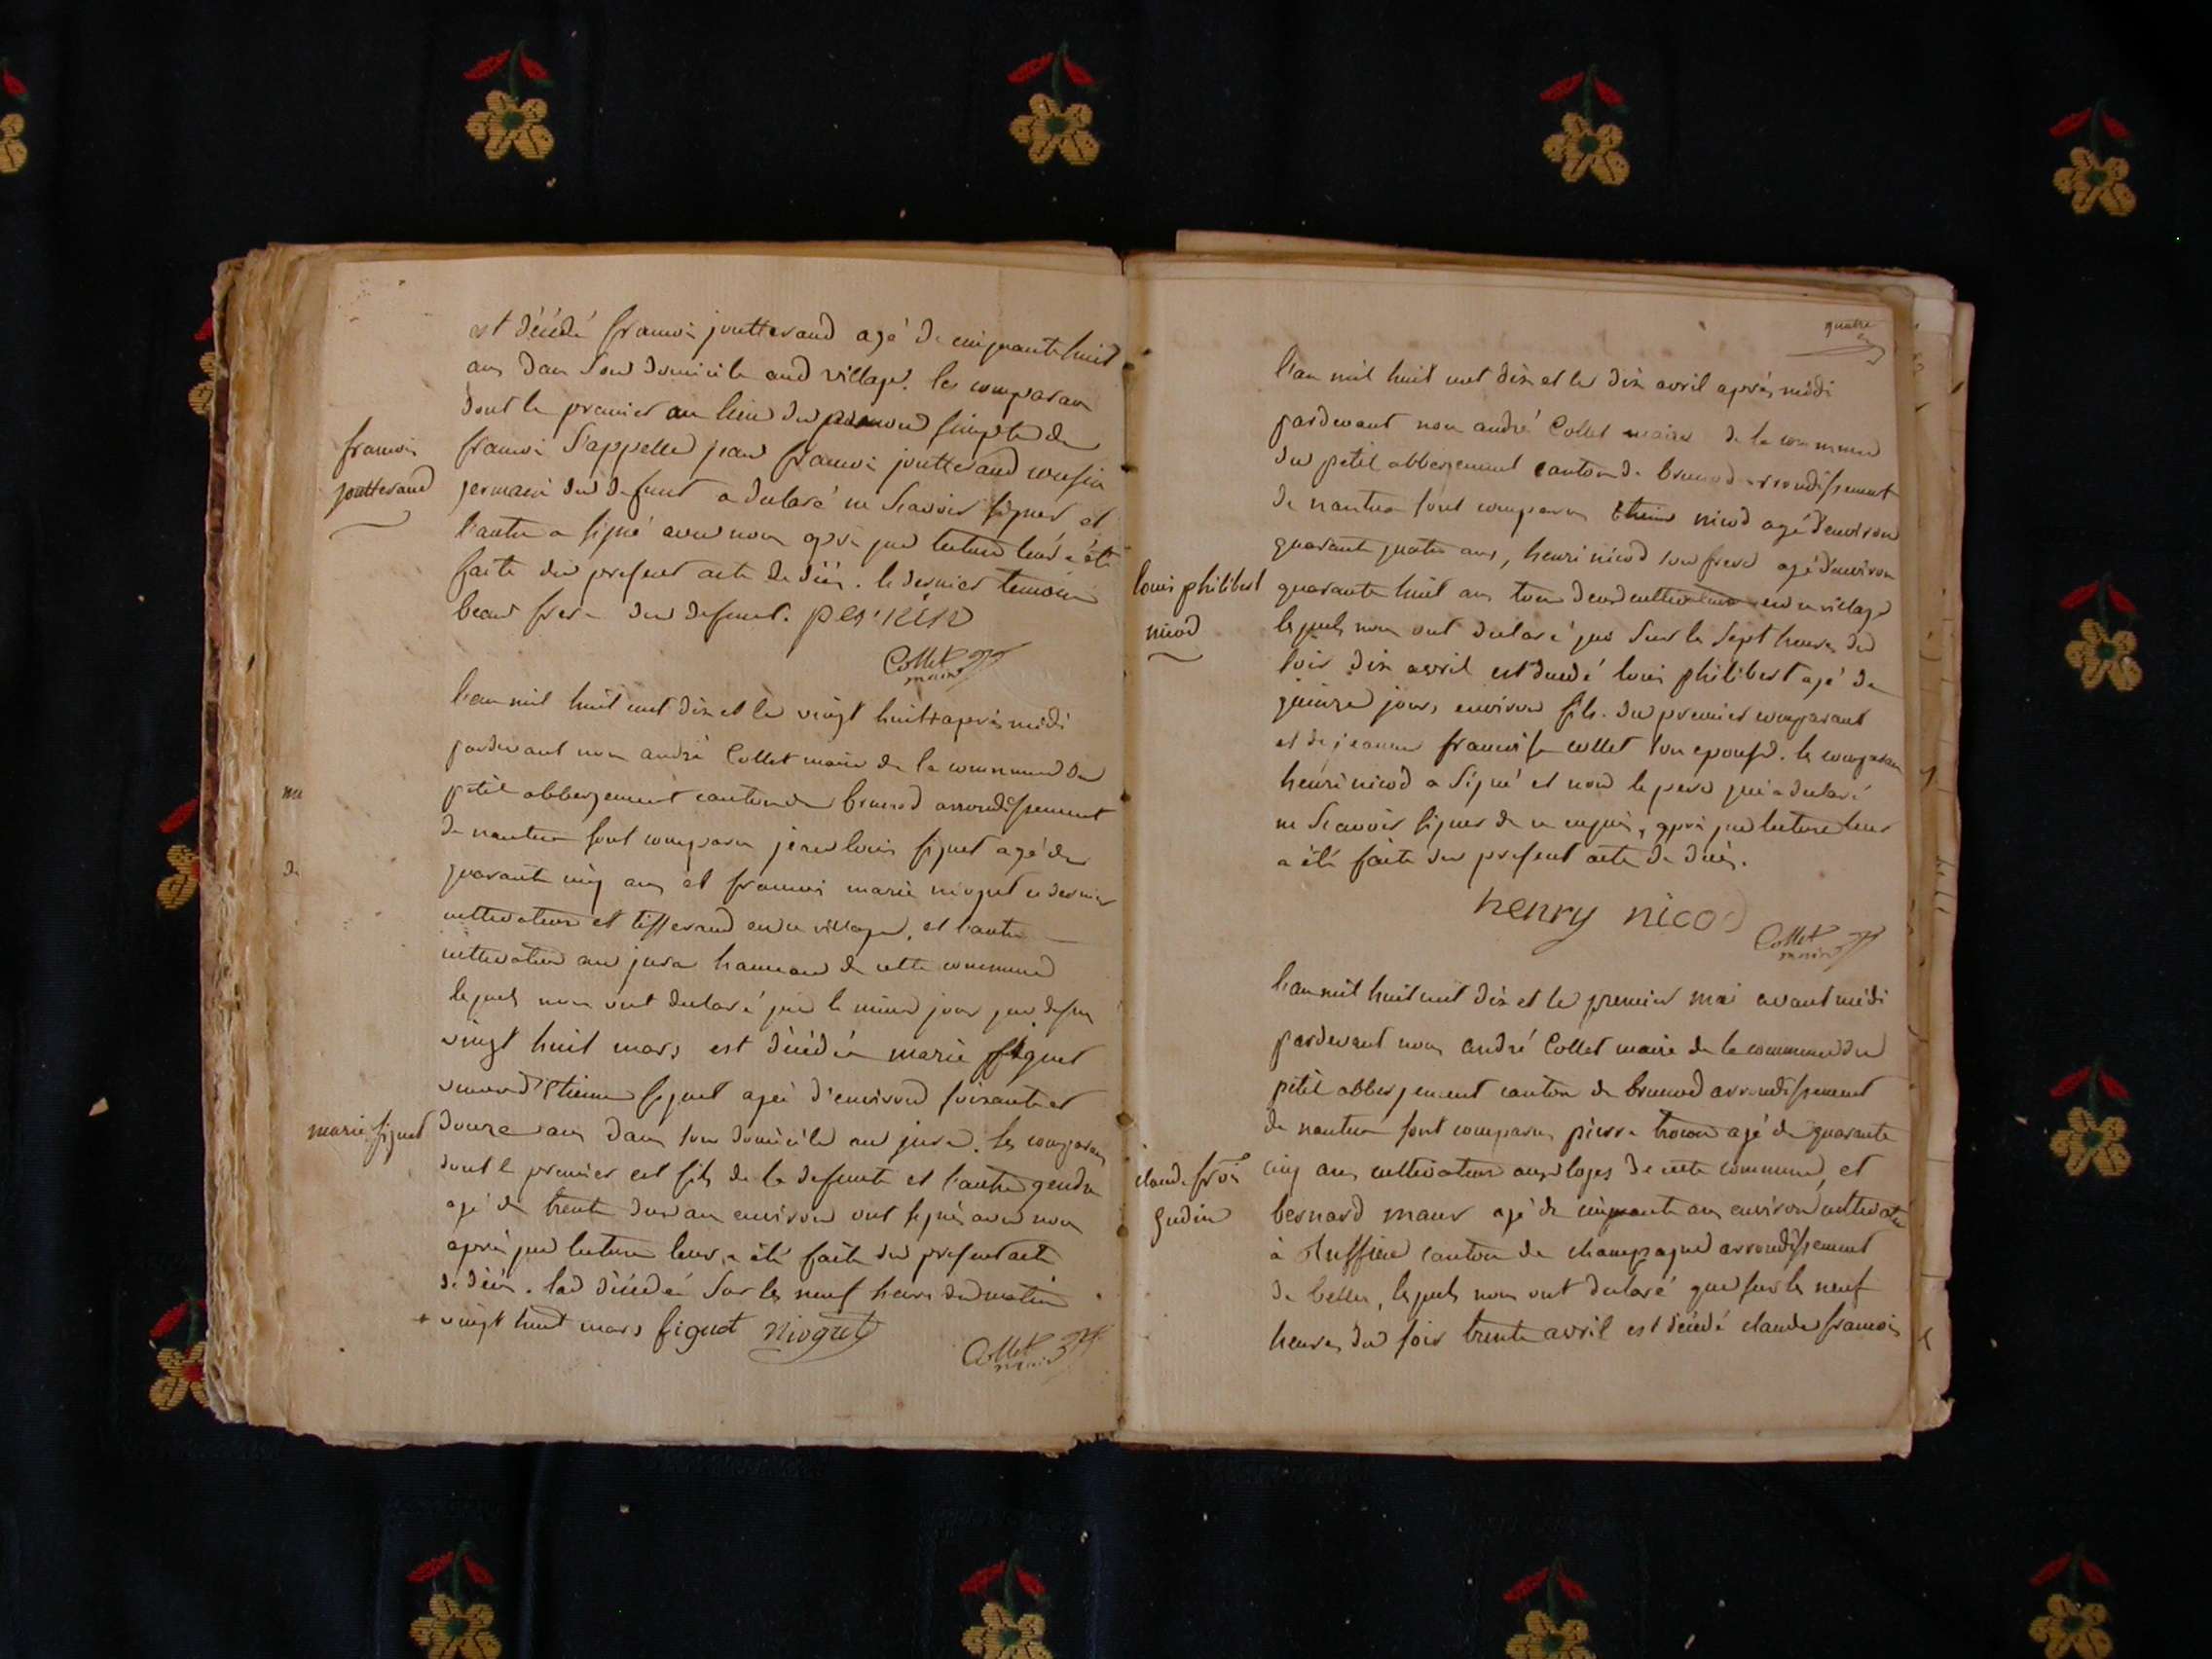 est décédé francoi jouttevand agé de cinquante huit
ans dans Son domicile aud village. les comparans
dont le premier au lieu du prenom simple de
francoi S'appelle jean francoi jouttevand cousin
germain du defunt a declaré ne Scavoir signer et
l'autre a signé avec nous après que lecture leur a été
faite du present acte de décès. le dernier temoin
beau frere du defunt. perrin
francoi
jouttevand
Collet
maire
l'an mil huit cent dix et le vingt huit + après midi
pardevant nous andré Collet maire de la commune du
petit abbergement canton de brenod arrondissement
de nantua sont comparu jean louis figuet agé de
quarante cinq ans et francoi marie nioguet ce dernier
cultivateur et tisserand en ce village, et l'autre
cultivateur au jura hameau de cette commune
lesquels nous ont declaré que le même jour que dessus
vingt huit mars est décédée marie figuet
veuve d'Etienne figuet agée d'environ soixante et
douze ans dans son domicile au jura. les comparans
dont le premier est fils de la defunte et l'autre gendre
agé de trente deux ans environ ont signés avec nous
après que lecture leur a été faite du present acte
de décès. lad décédée Sur les neuf heures du matin
+ vingt huit mars figuet Nioguet
marie figuet
Collet
maire
quatre
l'an mil huit cent dix et le dix avril après midi
pardevant nous andré Collet maire de la commune
du petit abbergement canton de brenod arrondissement
de nantua sont comparus Etienne nicod agé d'environ
quarante quatre ans, henri nicod son frere agé d'environ
quarante huit ans tous deux cultivateurs en ce village
lesquels nous ont declaré que Sur les Sept heures du
soir dix avril est decedé louis philibert agé de
quinze jours environ fils du premier comparant
et de jeanne francoise collet son epouse. le comparant
henri nicod a Signé et non le pere qui a declaré
ne Scavoir signer de ce enquis, après que lecture leur
a été faite du present acte de decès.
louis philibert
nicod
henry nicod
Collet
maire
l'an mil huit cent dix et le premier mai avant midi
pardevant nous andré Collet maire de la commune du
petit abbergement canton de brenod arrondissement
de nantua sont comparus pierre trocon agé de quarante
cinq ans cultivateur aux loges de cette commune, et
bernard maur agé de cinquante ans environ cultivateur
à Ruffieu canton de champagne arrondissement
de belley, lesquels nous ont declaré que sur les neuf
heures du soir trente avril est décédé claude francois
claude fr.ois
gudin